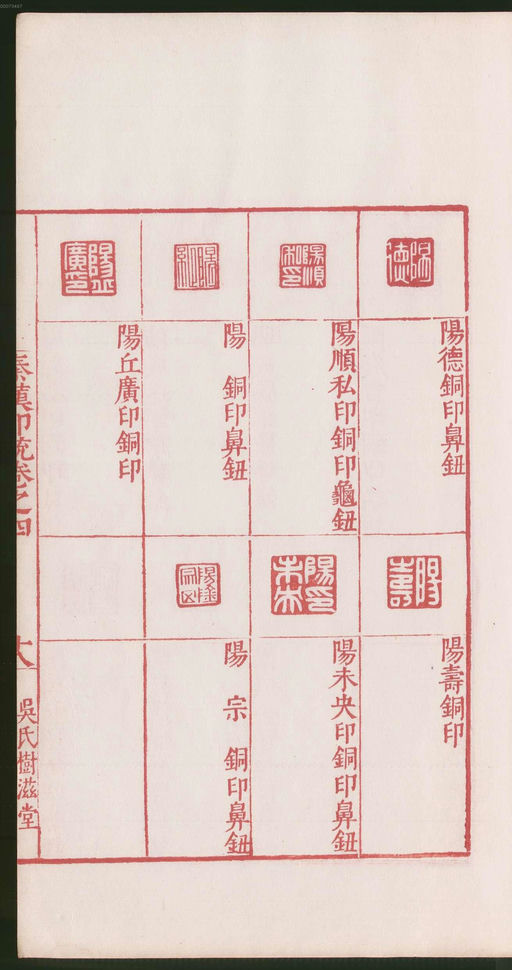 陽德銅印鼻鈕
陽壽銅印
陽順私印銅印龜鈕
陽未央印銅印鼻鈕
陽 銅印鼻鈕
陽 宗 銅印鼻鈕
陽丘廣印銅印
秦漢印統卷之四
吳氏樹滋堂
00073487